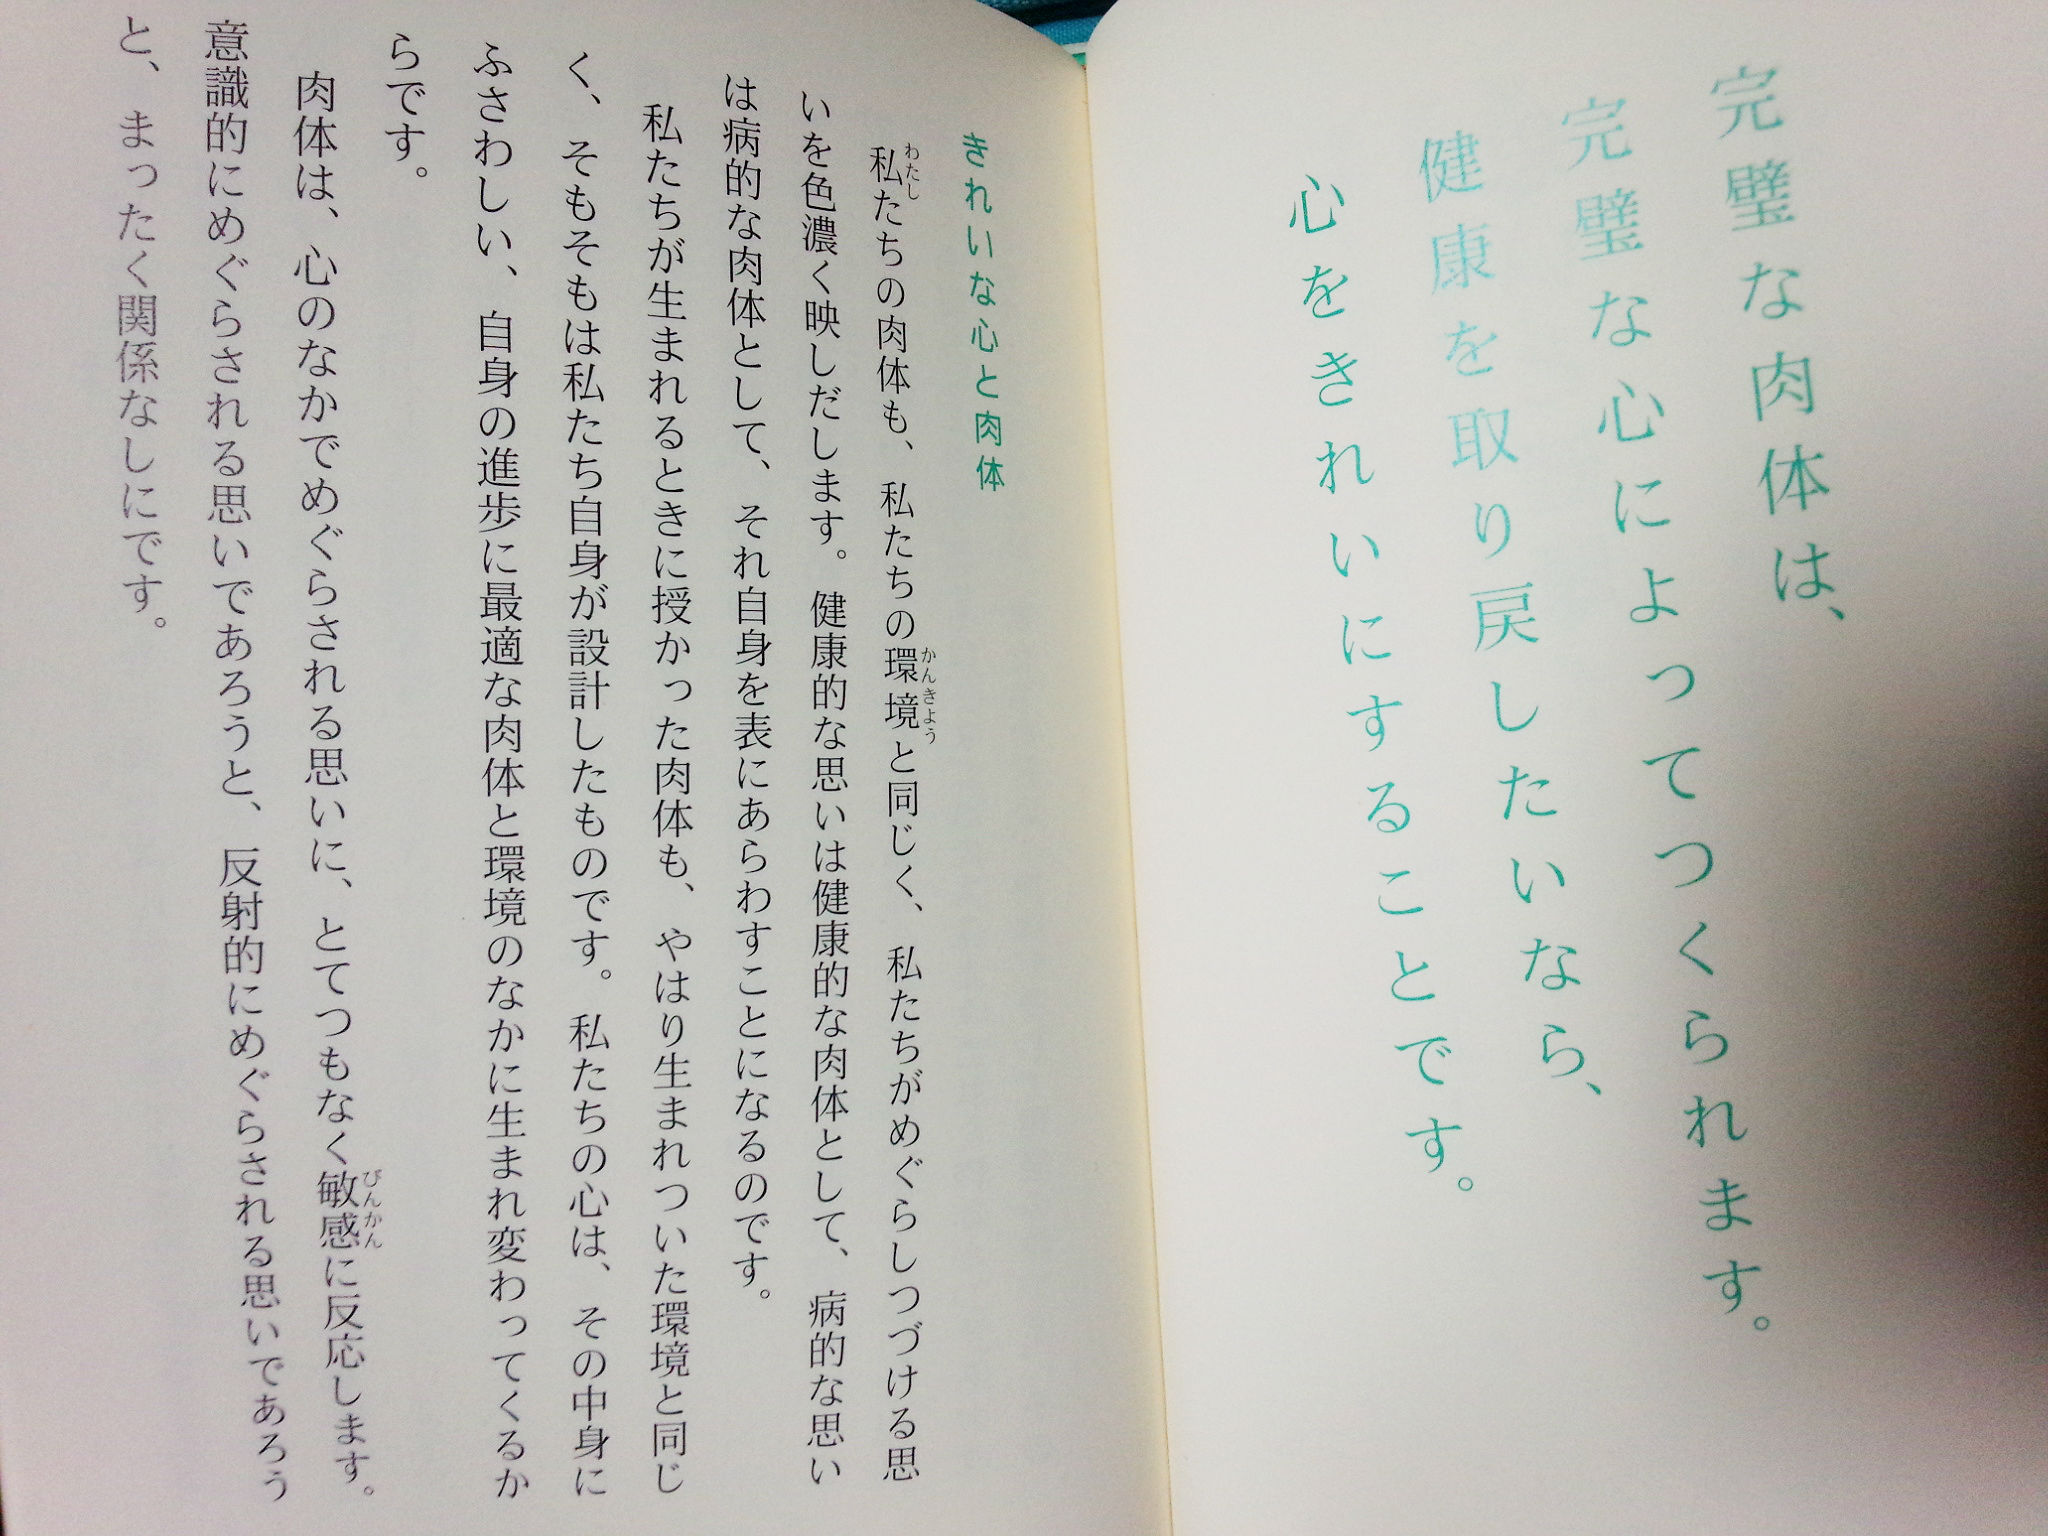 完璧な肉体は、
完璧な心によってつくられます。
健康を取り戻したいなら、
心をきれいにすることです。
きれいな心と肉体
私たちの肉体も、私たちの環境と同じく、私たちがめぐらしつづける思
わたし
かんきょう
いを色濃く映しだします。健康的な思いは健康的な肉体として、病的な思い
は病的な肉体として、それ自身を表にあらわすことになるのです。
私たちが生まれるときに授かった肉体も、やはり生まれついた環境と同じ
く、そもそもは私たち自身が設計したものです。私たちの心は、その中身に
ふさわしい、自身の進歩に最適な肉体と環境のなかに生まれ変わってくるか
らです。
肉体は、心のなかでめぐらされる思いに、とてつもなく敏感に反応します。
びんかん
意識的にめぐらされる思いであろうと、反射的にめぐらされる思いであろう
と、まったく関係なしにです。